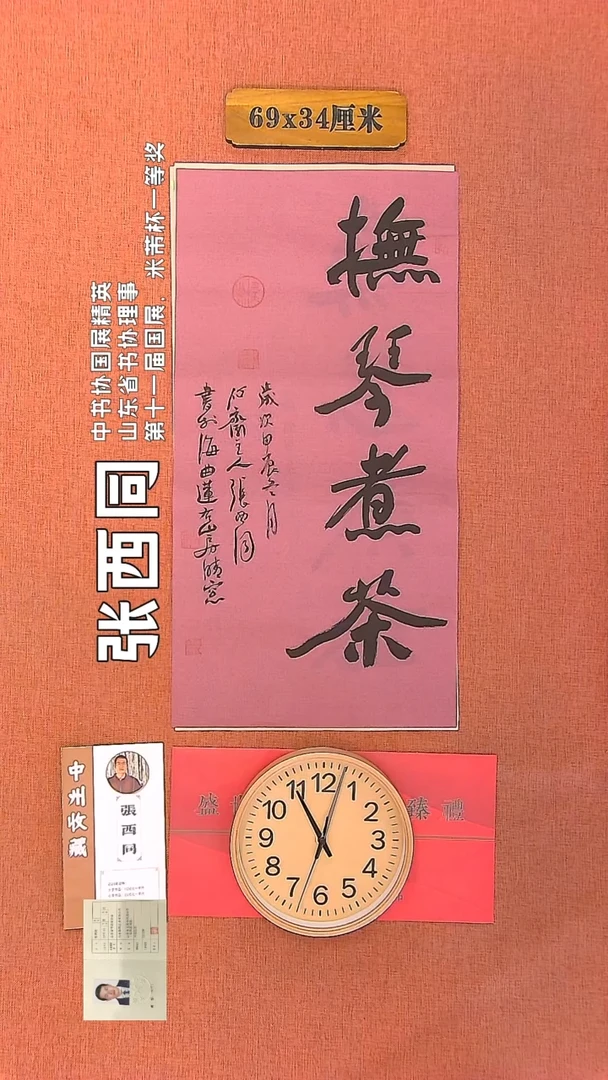 69x34厘米
撫琴煮茶
歲次甲辰冬月
何齋主人張西同
書於海曲蓮花山房晴窓
张西同
中书协国展精英
山东省书协理事
第十一届国展，米芾杯一等奖
盛
臻禮
張西同
12
1
2
3
4
5
6
7
8
9
10
11